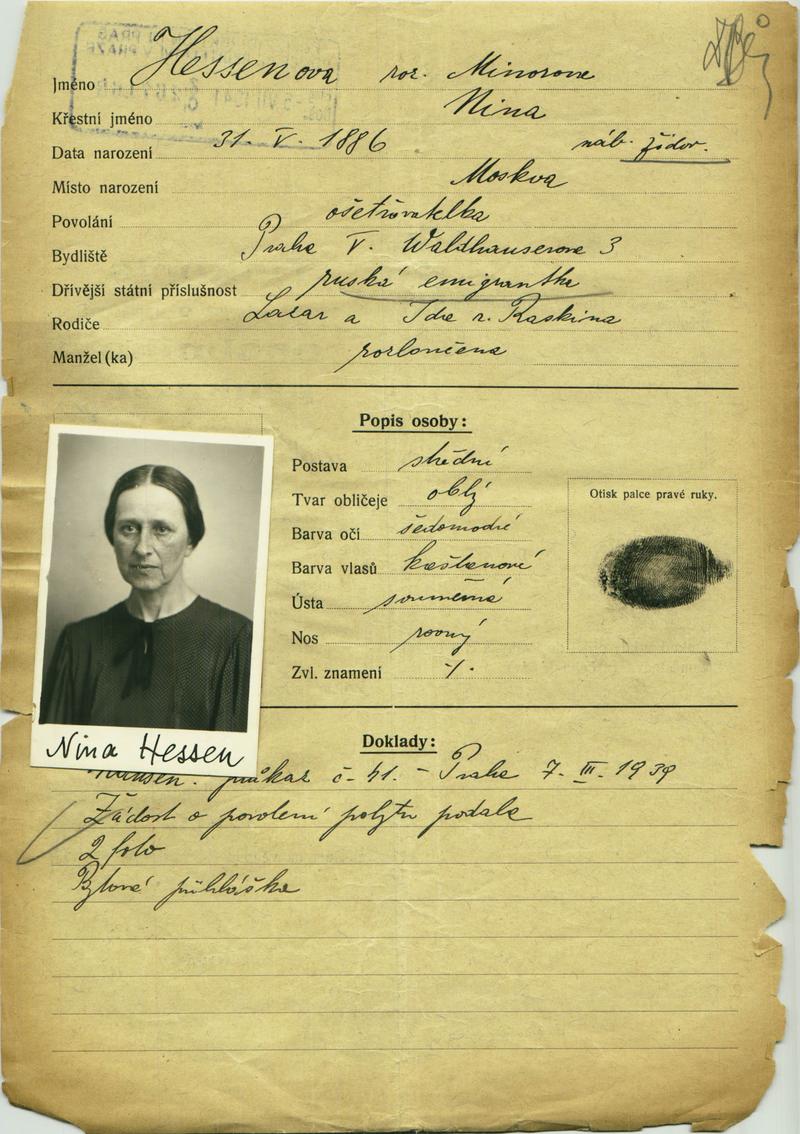 Jméno Hessenova roz. Minorova
Křestní jméno Nina
Data narození 31. V. 1886 náb. židov.
Místo narození Moskva
Povolání ošetřovatelka
Bydliště Praha V. Waldhauserova 3
Dřívější státní příslušnost ruská emigrantka
Rodiče Lazar a Ida r. Raskina
Manžel (ka) rozloučena
Popis osoby:
Postava střední
Tvar obličeje oblý
Barva očí šedomodré
Barva vlasů kaštanové
Ústa souměrná
Nos rovný
Zvl. znamení ./.
Otisk palce pravé ruky.
Nina Hessen
Doklady:
průkaz č. 41. - Praha 7. III. 1939
Žádost o povolení pobytu podala
2 foto
Bytová přihláška